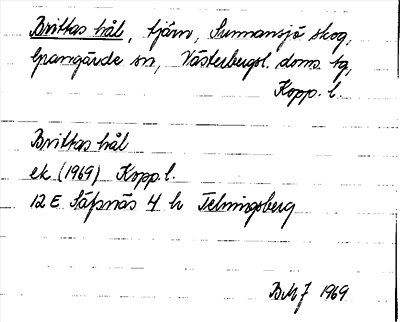 Brittas hål, tjärn, Sunnansjö skog,
Grangärde sn, Västerbergsl. doms. tg,
Kopp. l.
Brittas hål
ek (1969) Kopp. l.
12 E Säfsnäs 4 h Telningsberg
BMJ 1969